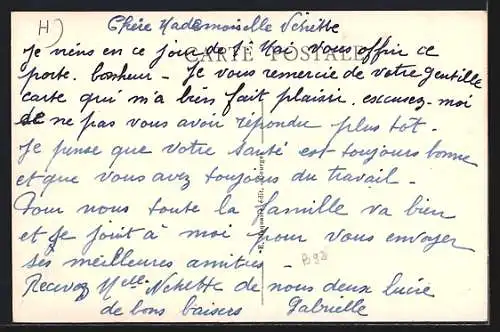 H)
Chère Mademoiselle Nénette
CARTE POSTALE
Je viens en ce jour de 1er Mai vous offrir ce
porte. bonheur - Je vous remercie de votre gentille
carte qui m'a bien fait plaisir. excusez-moi
de ne pas vous avoir répondu plus tôt.
Je pense que votre santé est toujours bonne
et que vous avez toujours du travail -
Pour nous toute la famille va bien
et se joint à moi pour vous envoyer
ses meilleures amitiés -
B98
Recevez Melle Nénette de nous deux Lucie
de bons baisers Gabrielle